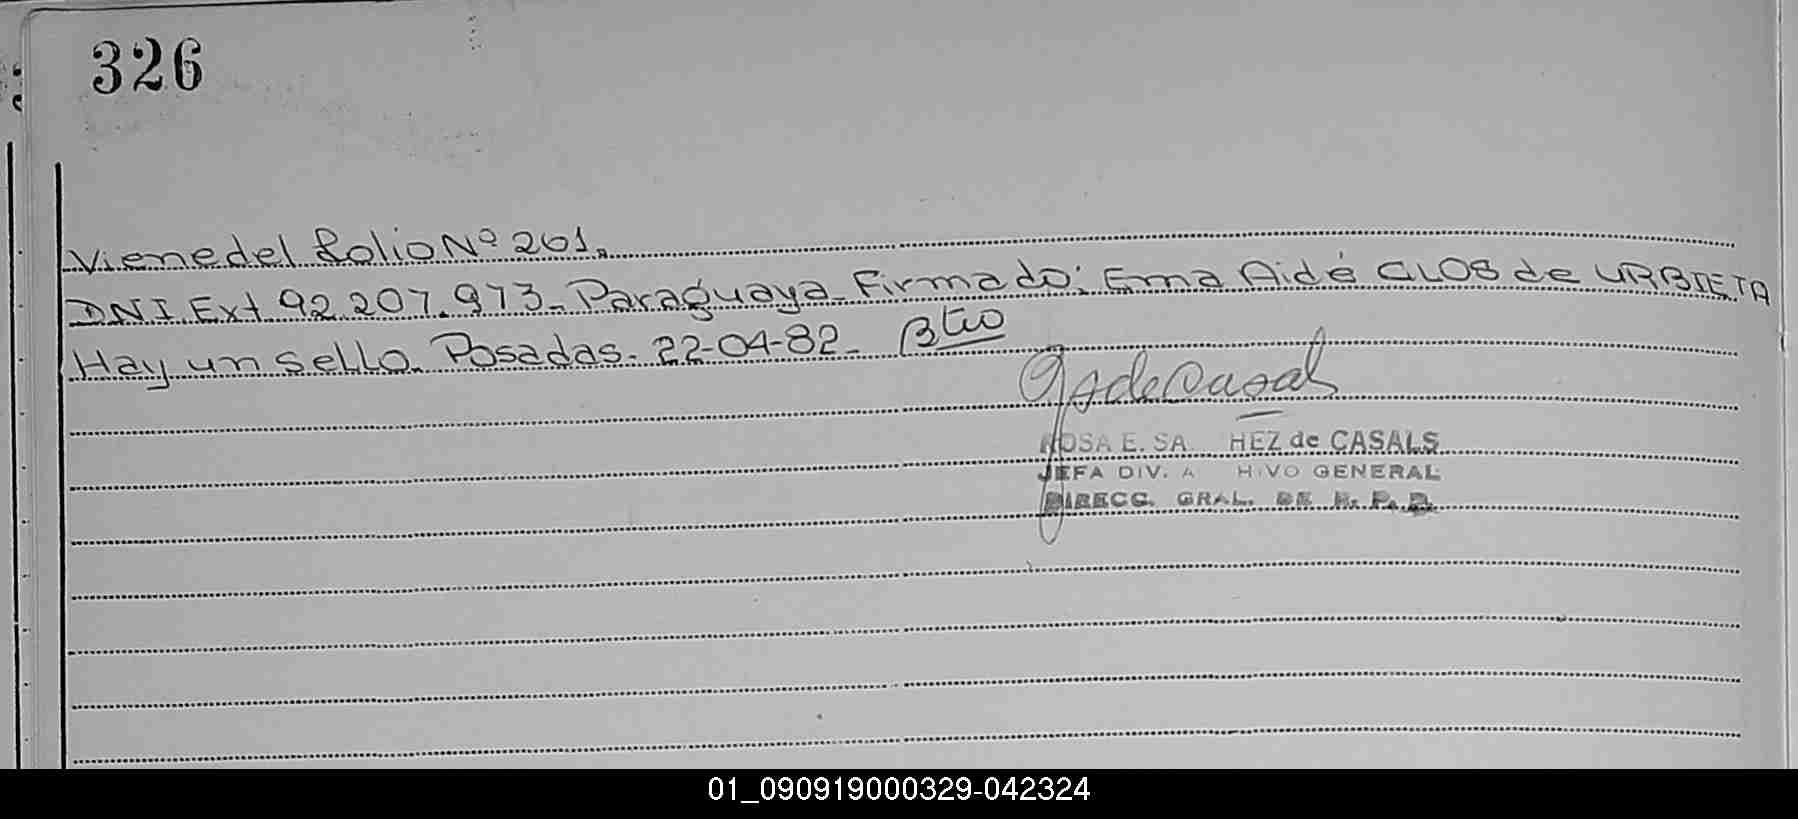 326
Viene del folio Nº 261.
DNI Ext 92.207.973_ Paraguaya_ Firmado: Ema Aidé CLOS de URBIETA
Hay un sello. Posadas. 22-04-82_ Btio
ROSA E. SA HEZ de CASALS
JEFA DIV. A HIVO GENERAL
DIRECC. GRAL. DE R. P. P.
01_090919000329-042324